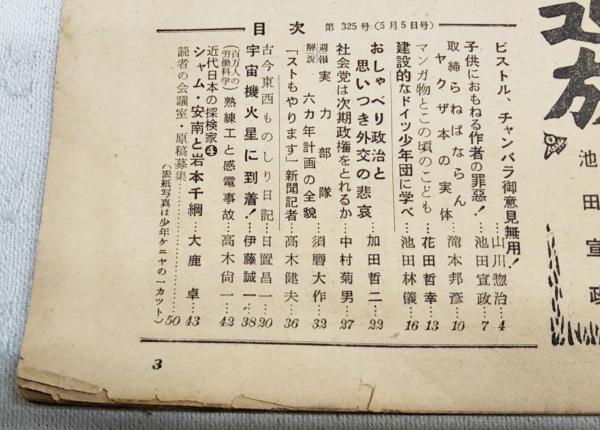 目次 第325号(5月5日号)
ピストル、チャンバラ御意見無用!…山川惣治…4
子供におもねる作者の罪惡!…池田宣政…7
取締らねばならん
ヤクザ本の実体…滝本邦彦…10
マンガ物とこの頃のこども…花田哲幸…13
建設的なドイツ少年団に学べ…池田林儀…16
おしゃべり政治と
思いつき外交の悲哀…加田哲二…22
社会党は次期政権をとれるか…中村菊男…27
週報解説 実力部隊
六カ年計画の全貌…須磨大作…32
「ストもやります」新聞記者…高木健夫…36
古今東西ものしり日記…日置昌一…20
宇宙機火星に到着!…伊藤誠一…38
(百万人の労働科学) 熟練工と感電事故…高木尚一…42
近代日本の探検家④
シャム・安南と岩本千綱…大鹿卓…43
読者の会議室・原稿募集…50
(表紙写真は少年ケニヤの一カット)
3
池田宣政